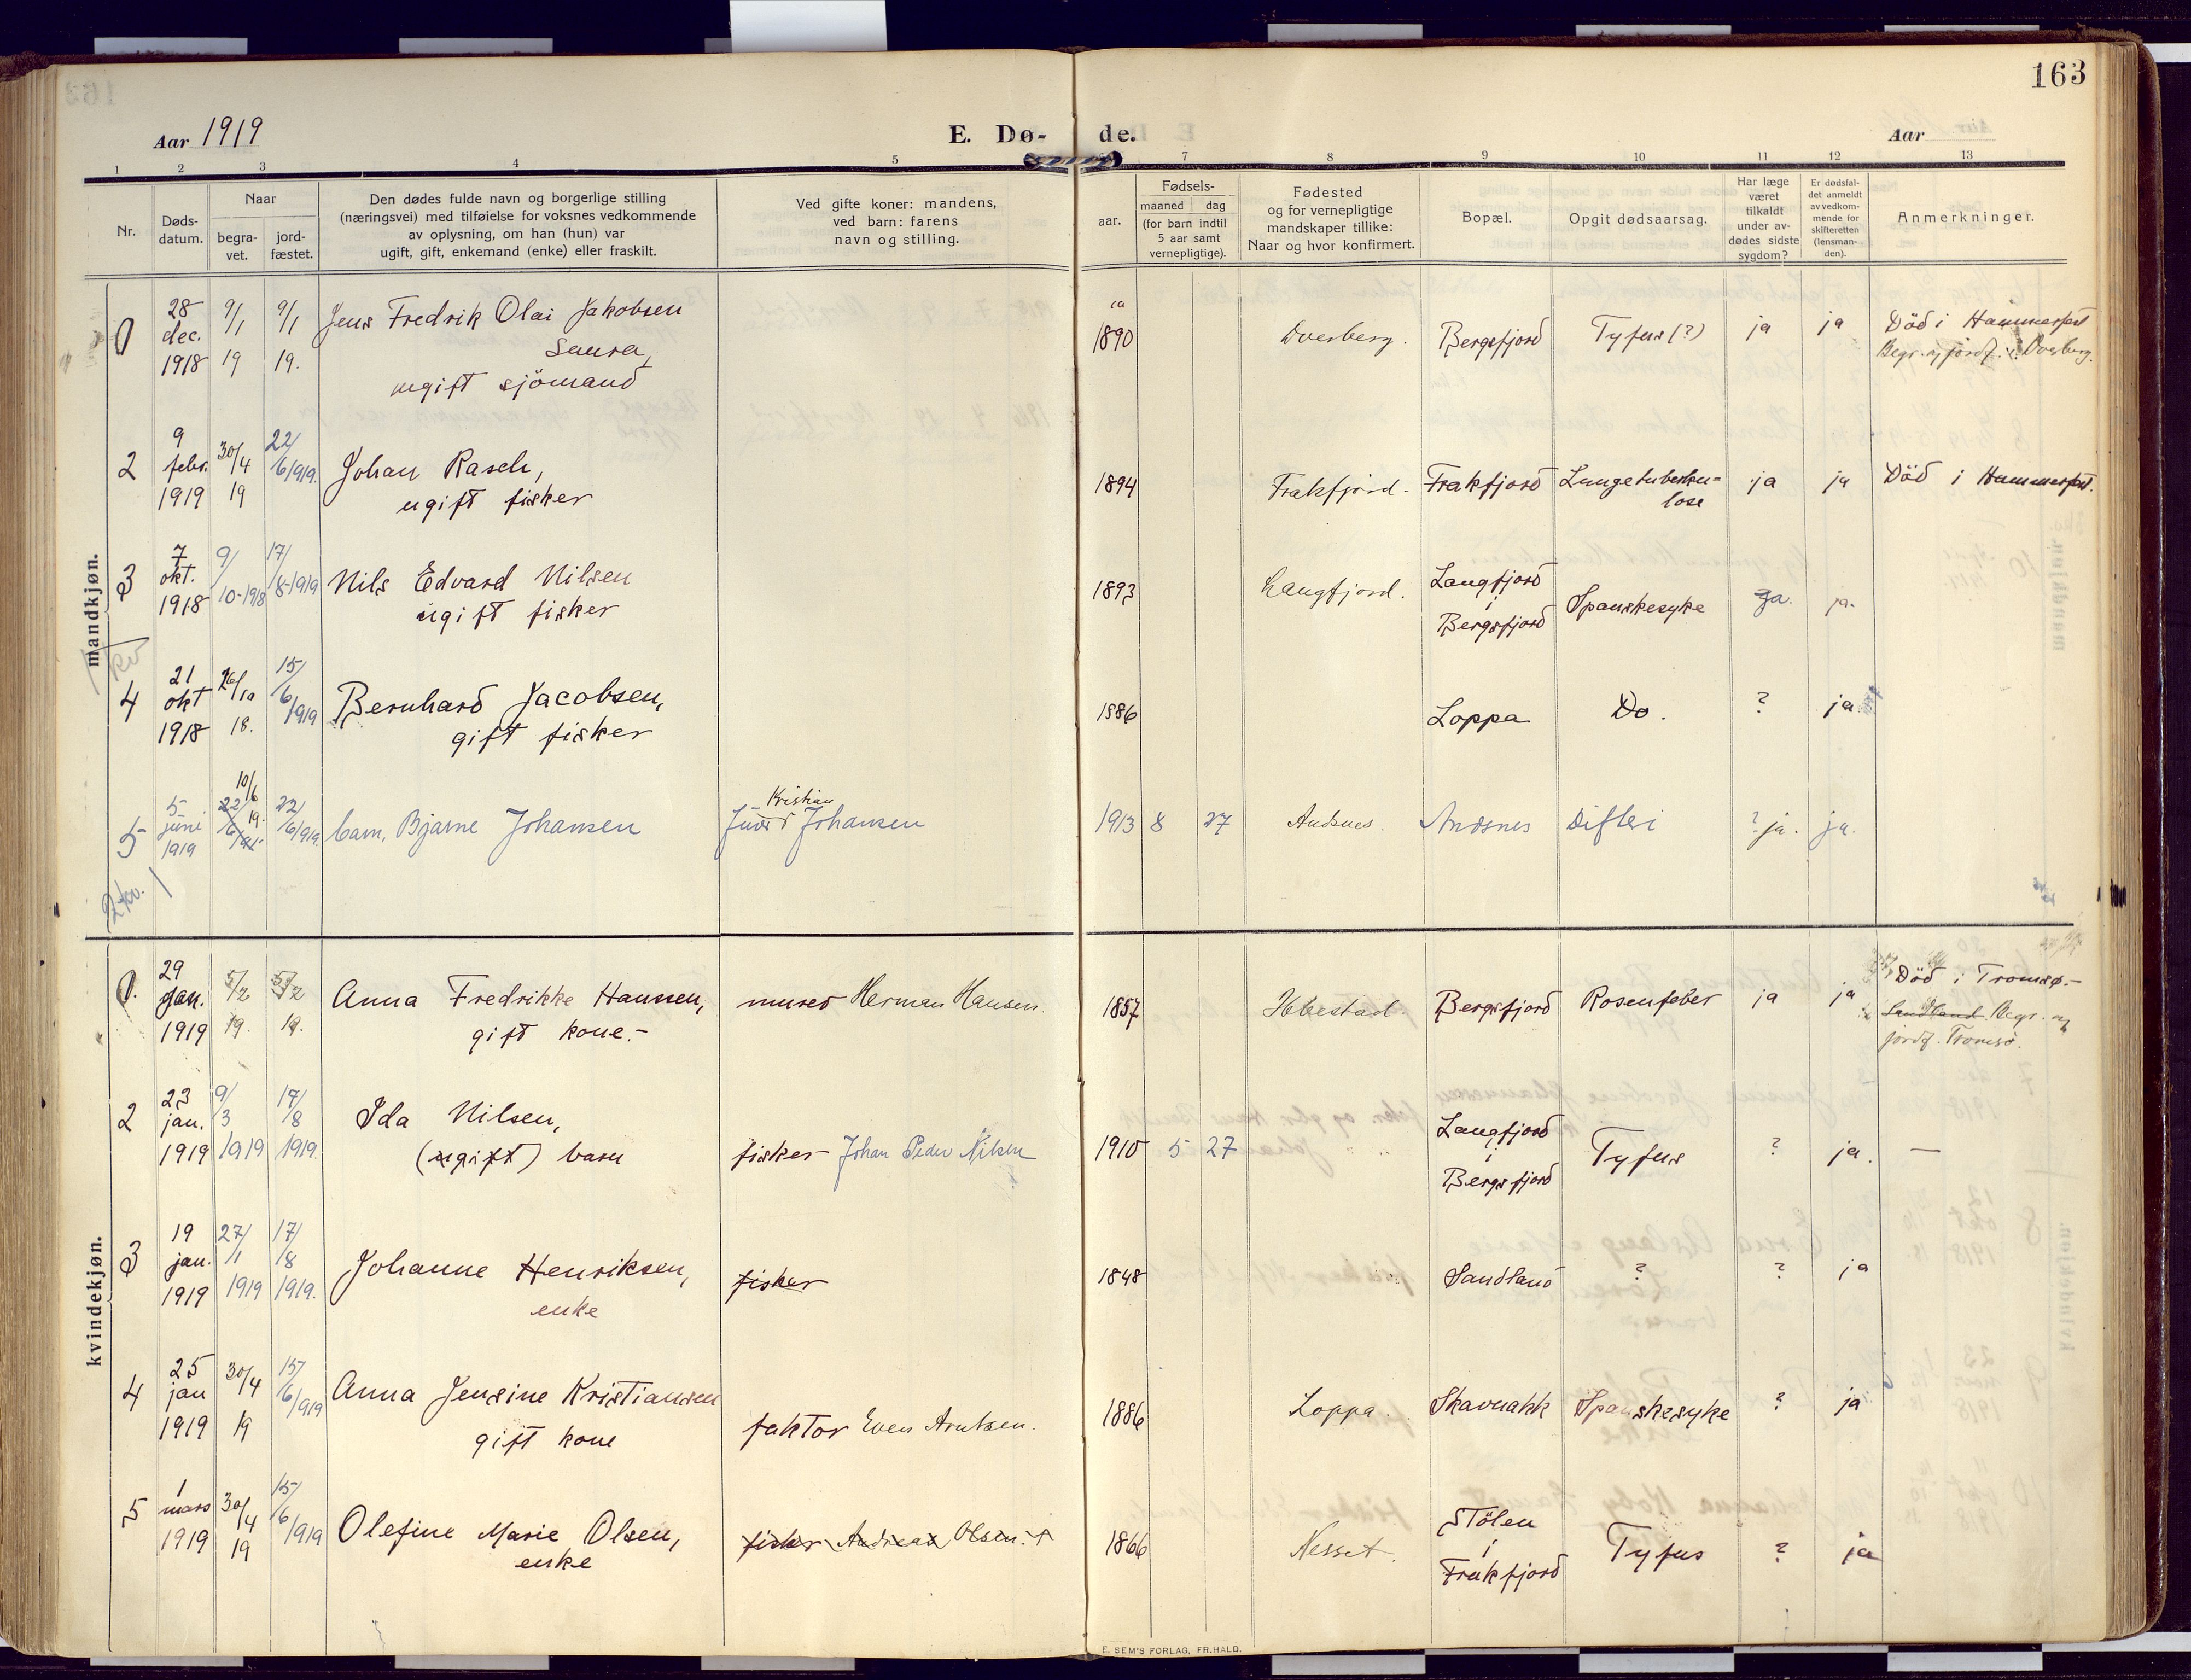 163
Aar 1919
E. Dø- de.
Aar
1 2 3 4 5 7 8 9 10 11 12 13
Nr.
Døds-
datum.
Naar
begra-
vet.
jord-
fæstet.
Den dødes fulde navn og borgerlige stilling
(næringsvei) med tilføielse for voksnes vedkommende
av oplysning, om han (hun) var
ugift, gift, enkemand (enke) eller fraskilt.
Ved gifte koner: mandens,
ved barn: farens
navn og stilling.
aar.
Fødsels-
maaned dag
(for barn indtil
5 aar samt
vernepligtige).
Fødested
og for vernepligtige
mandskaper tillike:
Naar og hvor konfirmert.
Bopæl.
Opgit dødsaarsag.
Har læge
været
tilkaldt
under av-
dødes sidste
sygdom?
Er dødsfal-
det anmeldt
av vedkom-
mende for
skifteretten
(lensman-
den).
Anmerkninger.
mandkjøn.
1 28 dec. 1918 9/1 19 9/1 19. Jens Fredrik Olai Jakobsen
Saura,
ugift sjömand
ca 1890 Dverberg. Bergsfjord Tyfus (?) ja ja Död i Hammerfest
Begr. og jordf. i Dverberg.
2 9 febr. 1919 30/4 19 22/6 1919. Johan Rasch,
ugift fisker
1894 Frakfjord. Frakfjord Lungetuberku=
lose ja ja Död i Hammerfest.
3 7 okt. 1918 9/10-1918 17/8-1919 Nils Edvard Nilsen
ugift fisker
1893 Langfjord. Langfjord
i
Bergsfjord Spanskesyke ja. ja.
kv
4 21 okt 1918 26/10 18. 15/6 1919 Bernhard Jacobsen,
gift fisker
1886 Loppa Do. ? ja
5 5 juni 1919 10/6 19. 22/6 22/6 1919. barn, Bjarne Johansen
Kristian
Johansen
1913 8 27 Andsnes. Andsnes Difteri ? ja. ja.
2 kv.
kvindekjøn.
1. 29 jan. 1919 5/2 19. 5/2 19. Anna Fredrikke Hansen,
gift kone.-
murer Herman Hansen.
1857 Ibestad. Bergsfjord Rosenfeber ja ja Död i Tromsø.-
Sandland Begr. og
jordf. Tromsö.
2 23 jan. 1919 9/3 1919 17/8 1919. Ida Nilsen,
(ugift) barn
fisker Johan Peder Nilsen
1910 5 27 Langfjord
i
Bergsfjord Tyfus ? ja. —
3 19 jan. 1919 27/1 1919 17/8 1919. Johanne Henriksen,
enke
fisker
1848 Sandland ? ? ja
4 25 jan 1919 30/4 19 15/6 1919 Anna Jensine Kristiansen
gift kone
faktor Even Arntsen.
1886 Loppa. Skavnakk Spanskesyke ? ja
5 1 mars 1919 30/4 19 15/6 1919 Olefine Marie Olsen,
enke
fisker Andreas Olsen. †
1866 Nesset. Stölen
i
Frakfjord Tyfus ? ja
E. SEM'S FORLAG, FR.HALD.